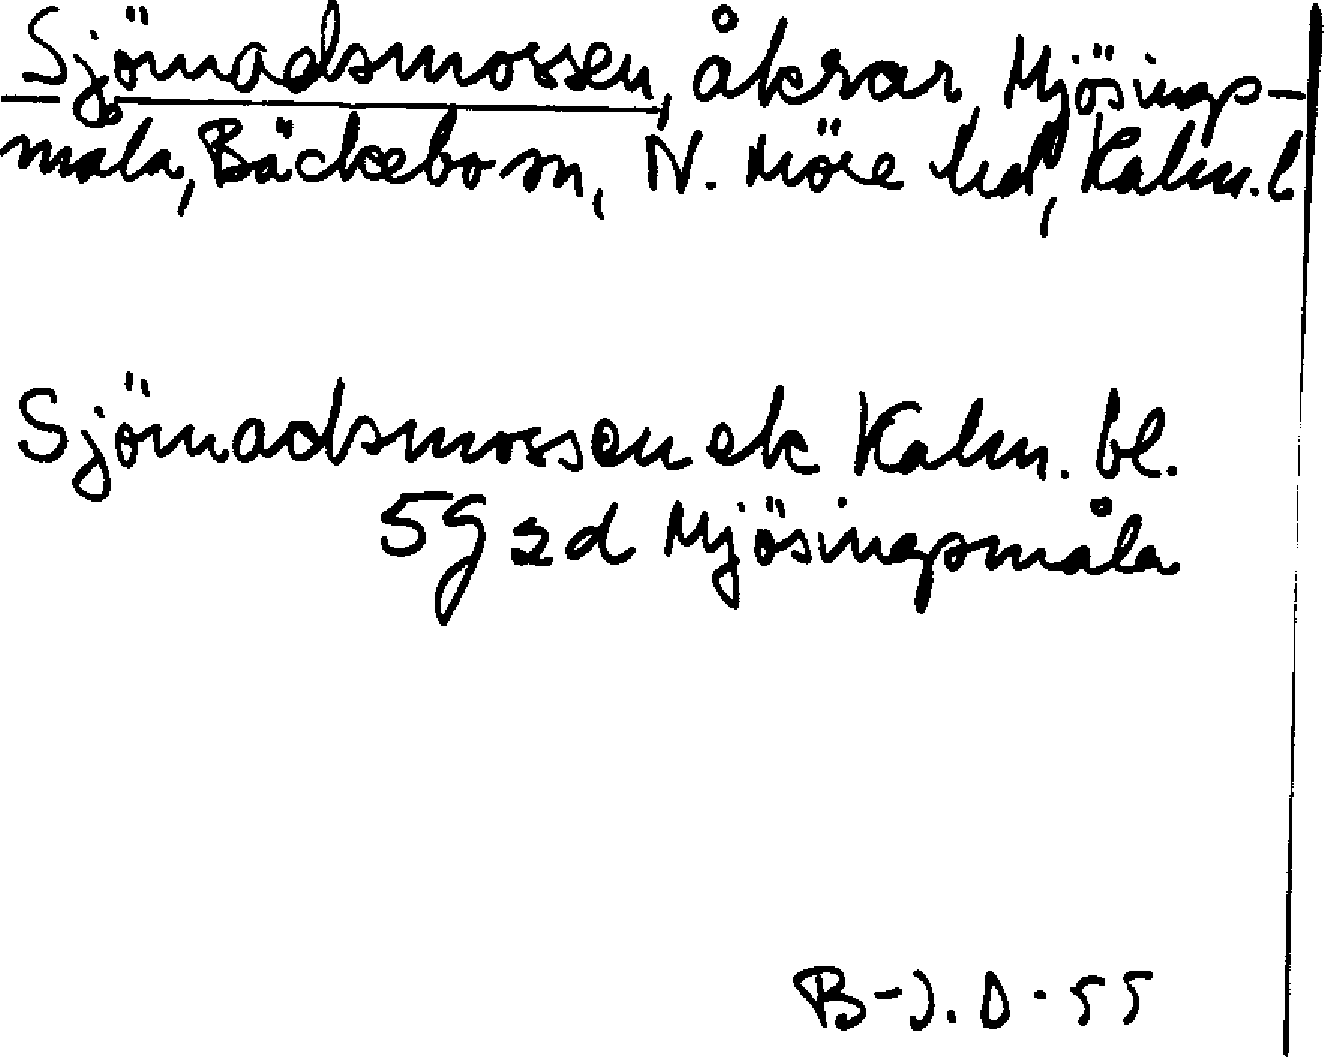 Sjömadsmossen, åkrar, Mjösings-
måla, Bäckebo sn, N. Möre hd, Kalm. l
Sjömadsmossen ek Kalm. bl.
5g sd Mjösingsmåla
B-J. D. 55